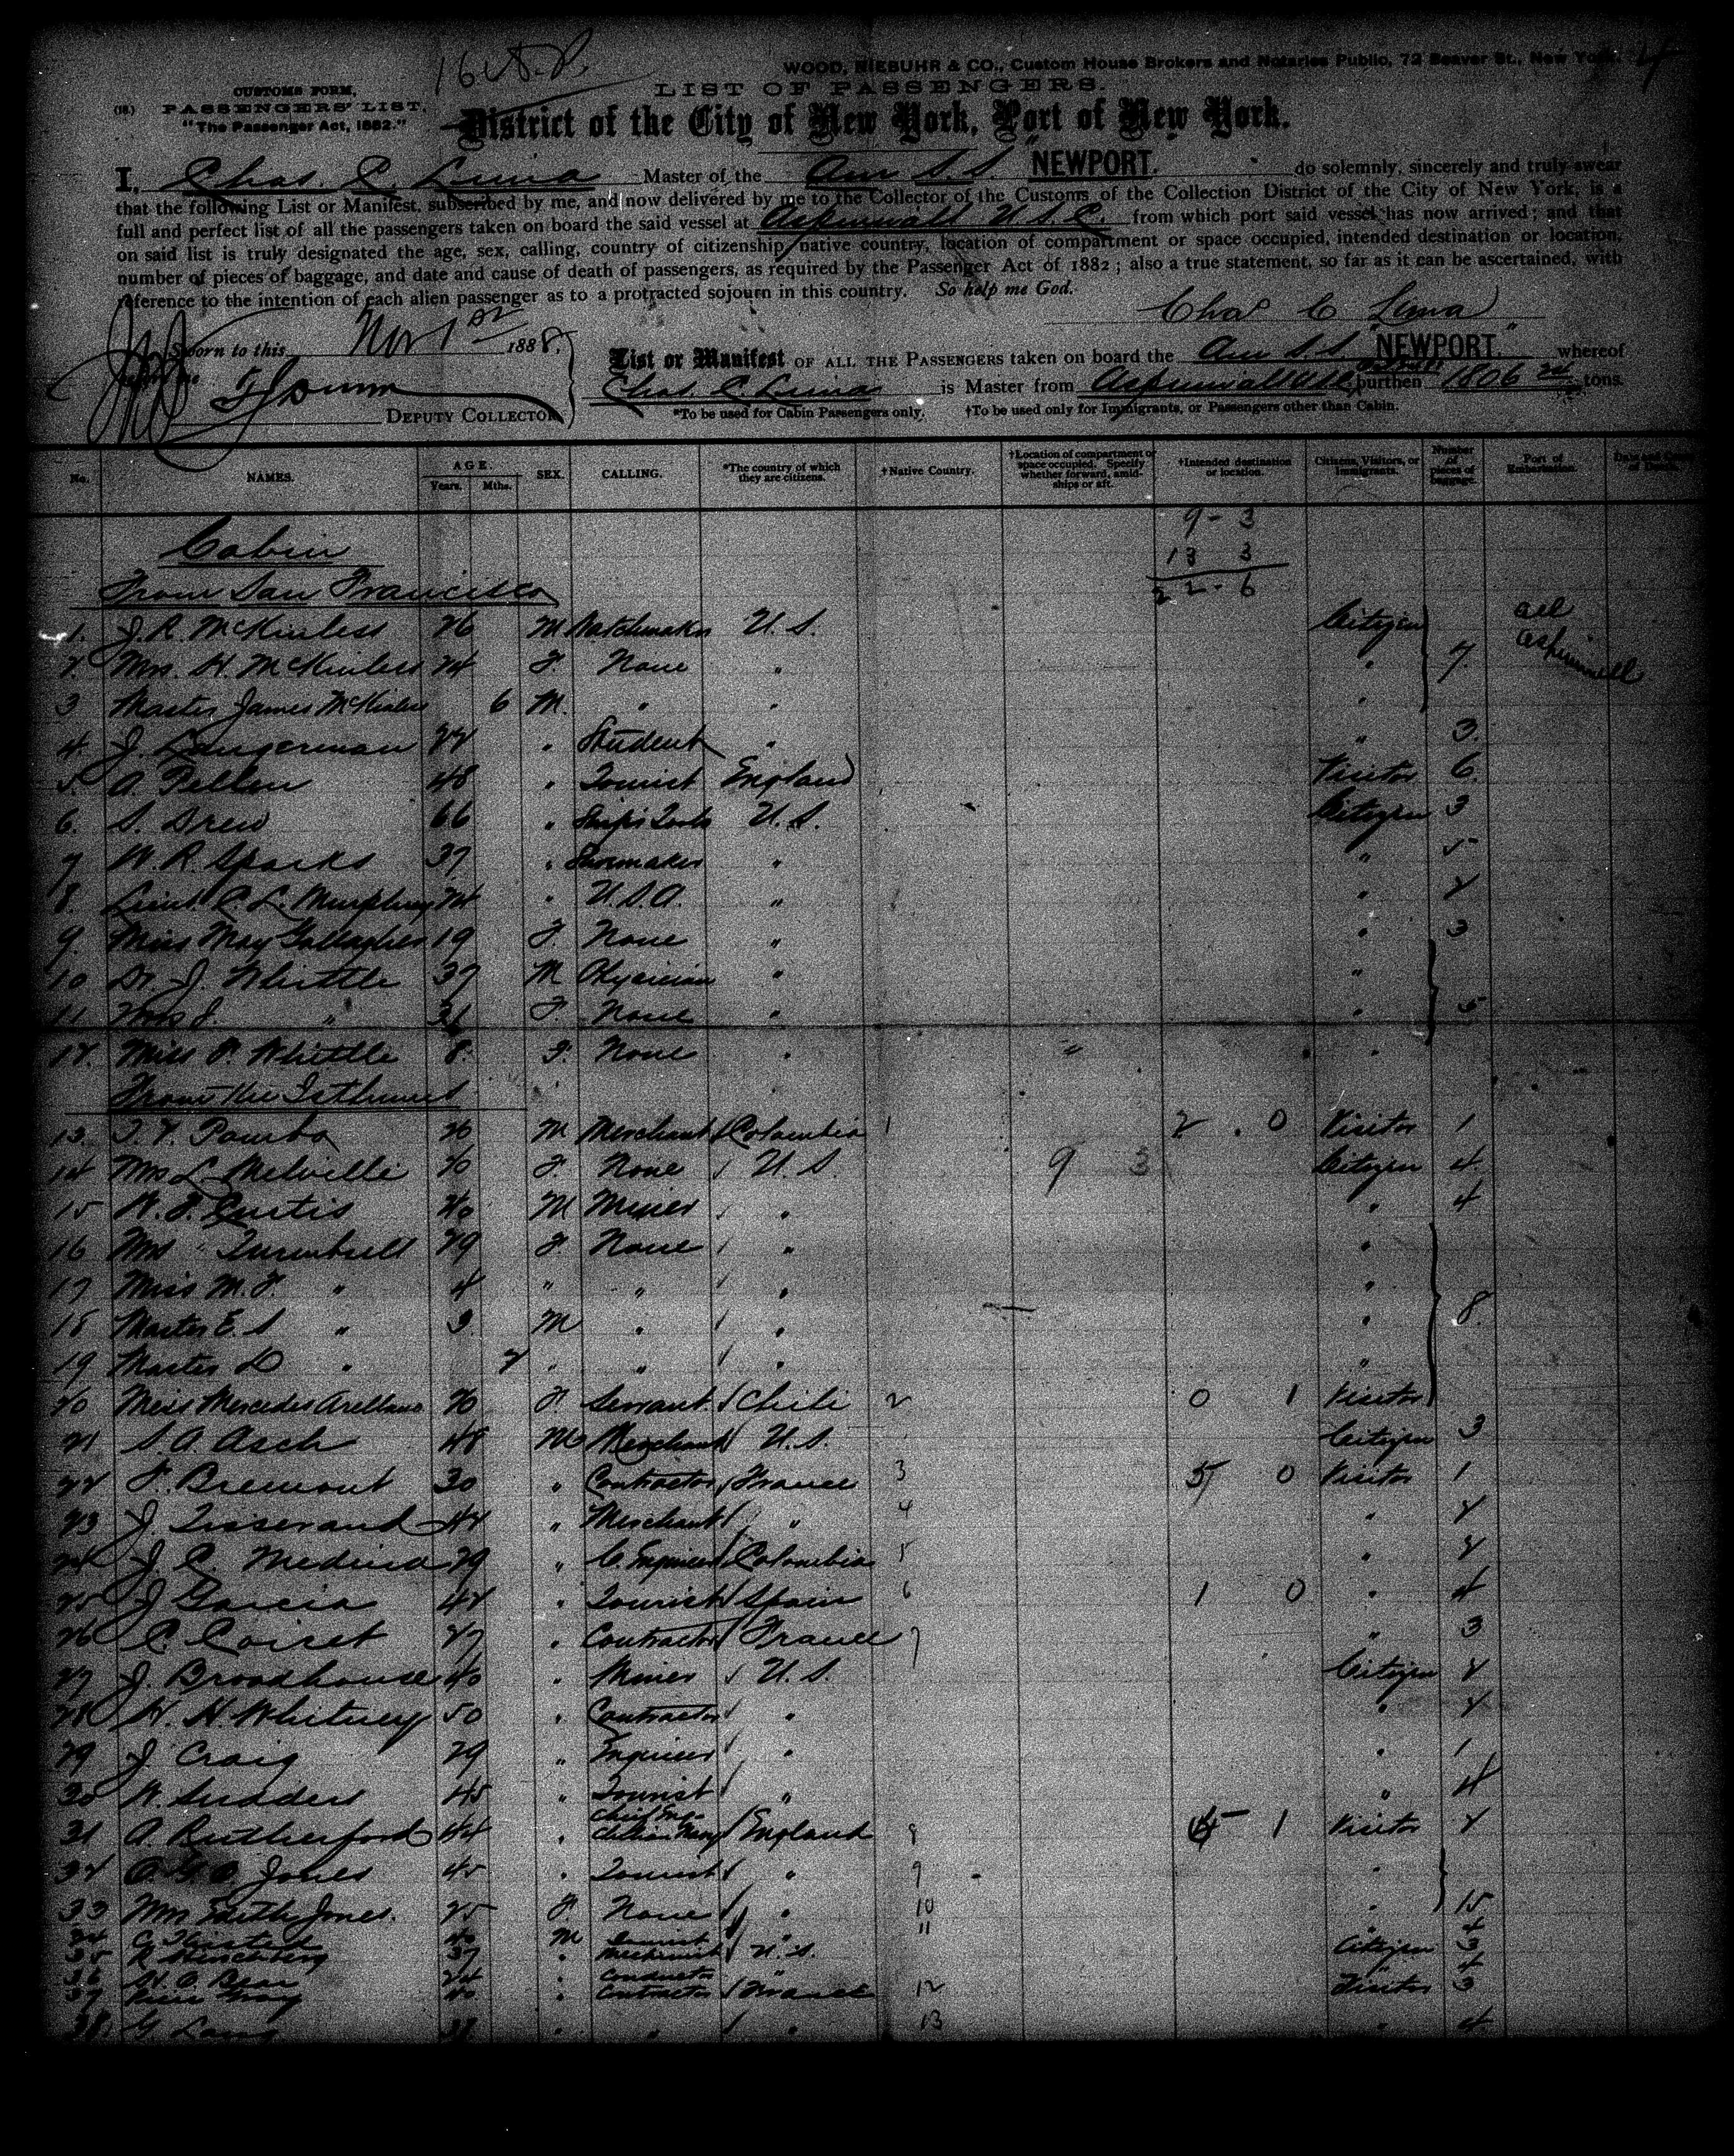 16
WOOD, NIEBUHR & CO., Custom House Brokers and Notaries Public, 72 Beaver St., New York.
CUSTOMS FORM,
LIST OF PASSENGERS.
(18.) PASSENGERS' LIST,
"The Passenger Act, 1882."
District of the City of New York, Port of New York.
I, Chas. C. Lima Master of the Am S.S. "NEWPORT." do solemnly, sincerely and truly swear
that the following List or Manifest, subscribed by me, and now delivered by me to the Collector of the Customs of the Collection District of the City of New York, is a
full and perfect list of all the passengers taken on board the said vessel at Aspinwall U.S.C. from which port said vessel has now arrived; and that
on said list is truly designated the age, sex, calling, country of citizenship, native country, location of compartment or space occupied, intended destination or location,
number of pieces of baggage, and date and cause of death of passengers, as required by the Passenger Act of 1882; also a true statement, so far as it can be ascertained, with
reference to the intention of each alien passenger as to a protracted sojourn in this country. So help me God.
Chas C Lima
Sworn to this Nov 1st 1888,
List or Manifest OF ALL THE PASSENGERS taken on board the Am S.S. "NEWPORT." whereof
Chas. C. Lima is Master from Aspinwall USC, burthen 1806 tons.
DEPUTY COLLECTOR
*To be used for Cabin Passengers only. †To be used only for Immigrants, or Passengers other than Cabin.
No. NAMES. AGE. Years. Mths. SEX. CALLING. *The country of which they are citizens. †Native Country. †Location of compartment or space occupied. Specify whether forward, amidships or aft. †Intended destination or location. Citizens, Visitors, or Immigrants. Number of pieces of baggage. Port of Embarkation. Date and Cause of Death.
9 - 3
Cabin
13 3
22 - 6
From San Francisco
1. J. R. McKinless 26 M Watchmaker U.S. Citizen all
2. Mrs. H. McKinless 24 F. None " " 7. Aspinwall
3 Master James McKinless 6 M. " " "
4. J. Langerman 22 " Student " " 3.
5. A. Pellew 48 " Tourist England Visitor 6.
6. S. Drew 66 " U.S. Citizen 3
7 W. R. Sparks 37 " " " 5
8. Lieut. C. L. Murphy 24 " U.S.A. " " 2
9. Miss May Gallagher 19 F. None " " 3
10 Dr. J. Whittle 37 M Physician " "
11 Mrs J. " 31 F. None " " 5
12. Miss F. Whittle 8. F. None " "
From the Isthmus
13. 26 M Merchant Colombia 1 2 . 0 Visitor 1
14 Mrs L. Melville 20 F. None U.S. 9 3 Citizen 4
15 W. F. Curtis 40 M Miner " " 4
16 Mrs " Turnbull 29 F. None " "
17 Miss M. F. " 4 " " " "
18 Master E. S " 3. M " " " 8.
19 Master D " 2 " " " "
20 Miss Mercedes Arellano 20 F Servant Chili 2 0 1 Visitor
21 S. A. Asch 48 M Merchant U.S. Citizen 3
22 F. Bremont 30 " Contractor France 3 5 0 Visitor 1
23 J. Tisserand 42 " Merchant " 4 " 2
24 J. C. Medina 29 " C. Engineer Colombia 5 " 2
25 J Garcia 42 " Tourist Spain 6 1 0 " 4
26 C. Coiret 27 " Contractor France 7 " 3
27 J. Broadhouse 40 " Miner U.S. Citizen 2
28 H. H. Whitney 50 " Contractor " " 2
29 J Craig 29 " Engineer " " 1
30 W. Sudden 45 " Tourist " " 4
31 A. Rutherford 44 " England 8 1 Visitor 2
32 Jones 45 " Tourist " 9 "
33 Jones. 25 F None " 10 " 15
34 M Tourist " 11 " 4
35 37 " U.S. Citizen 3
36 24 " Conductor " " 4
37 " Contractor France 12 Visitor 3
38 G. " " " 13 " 4